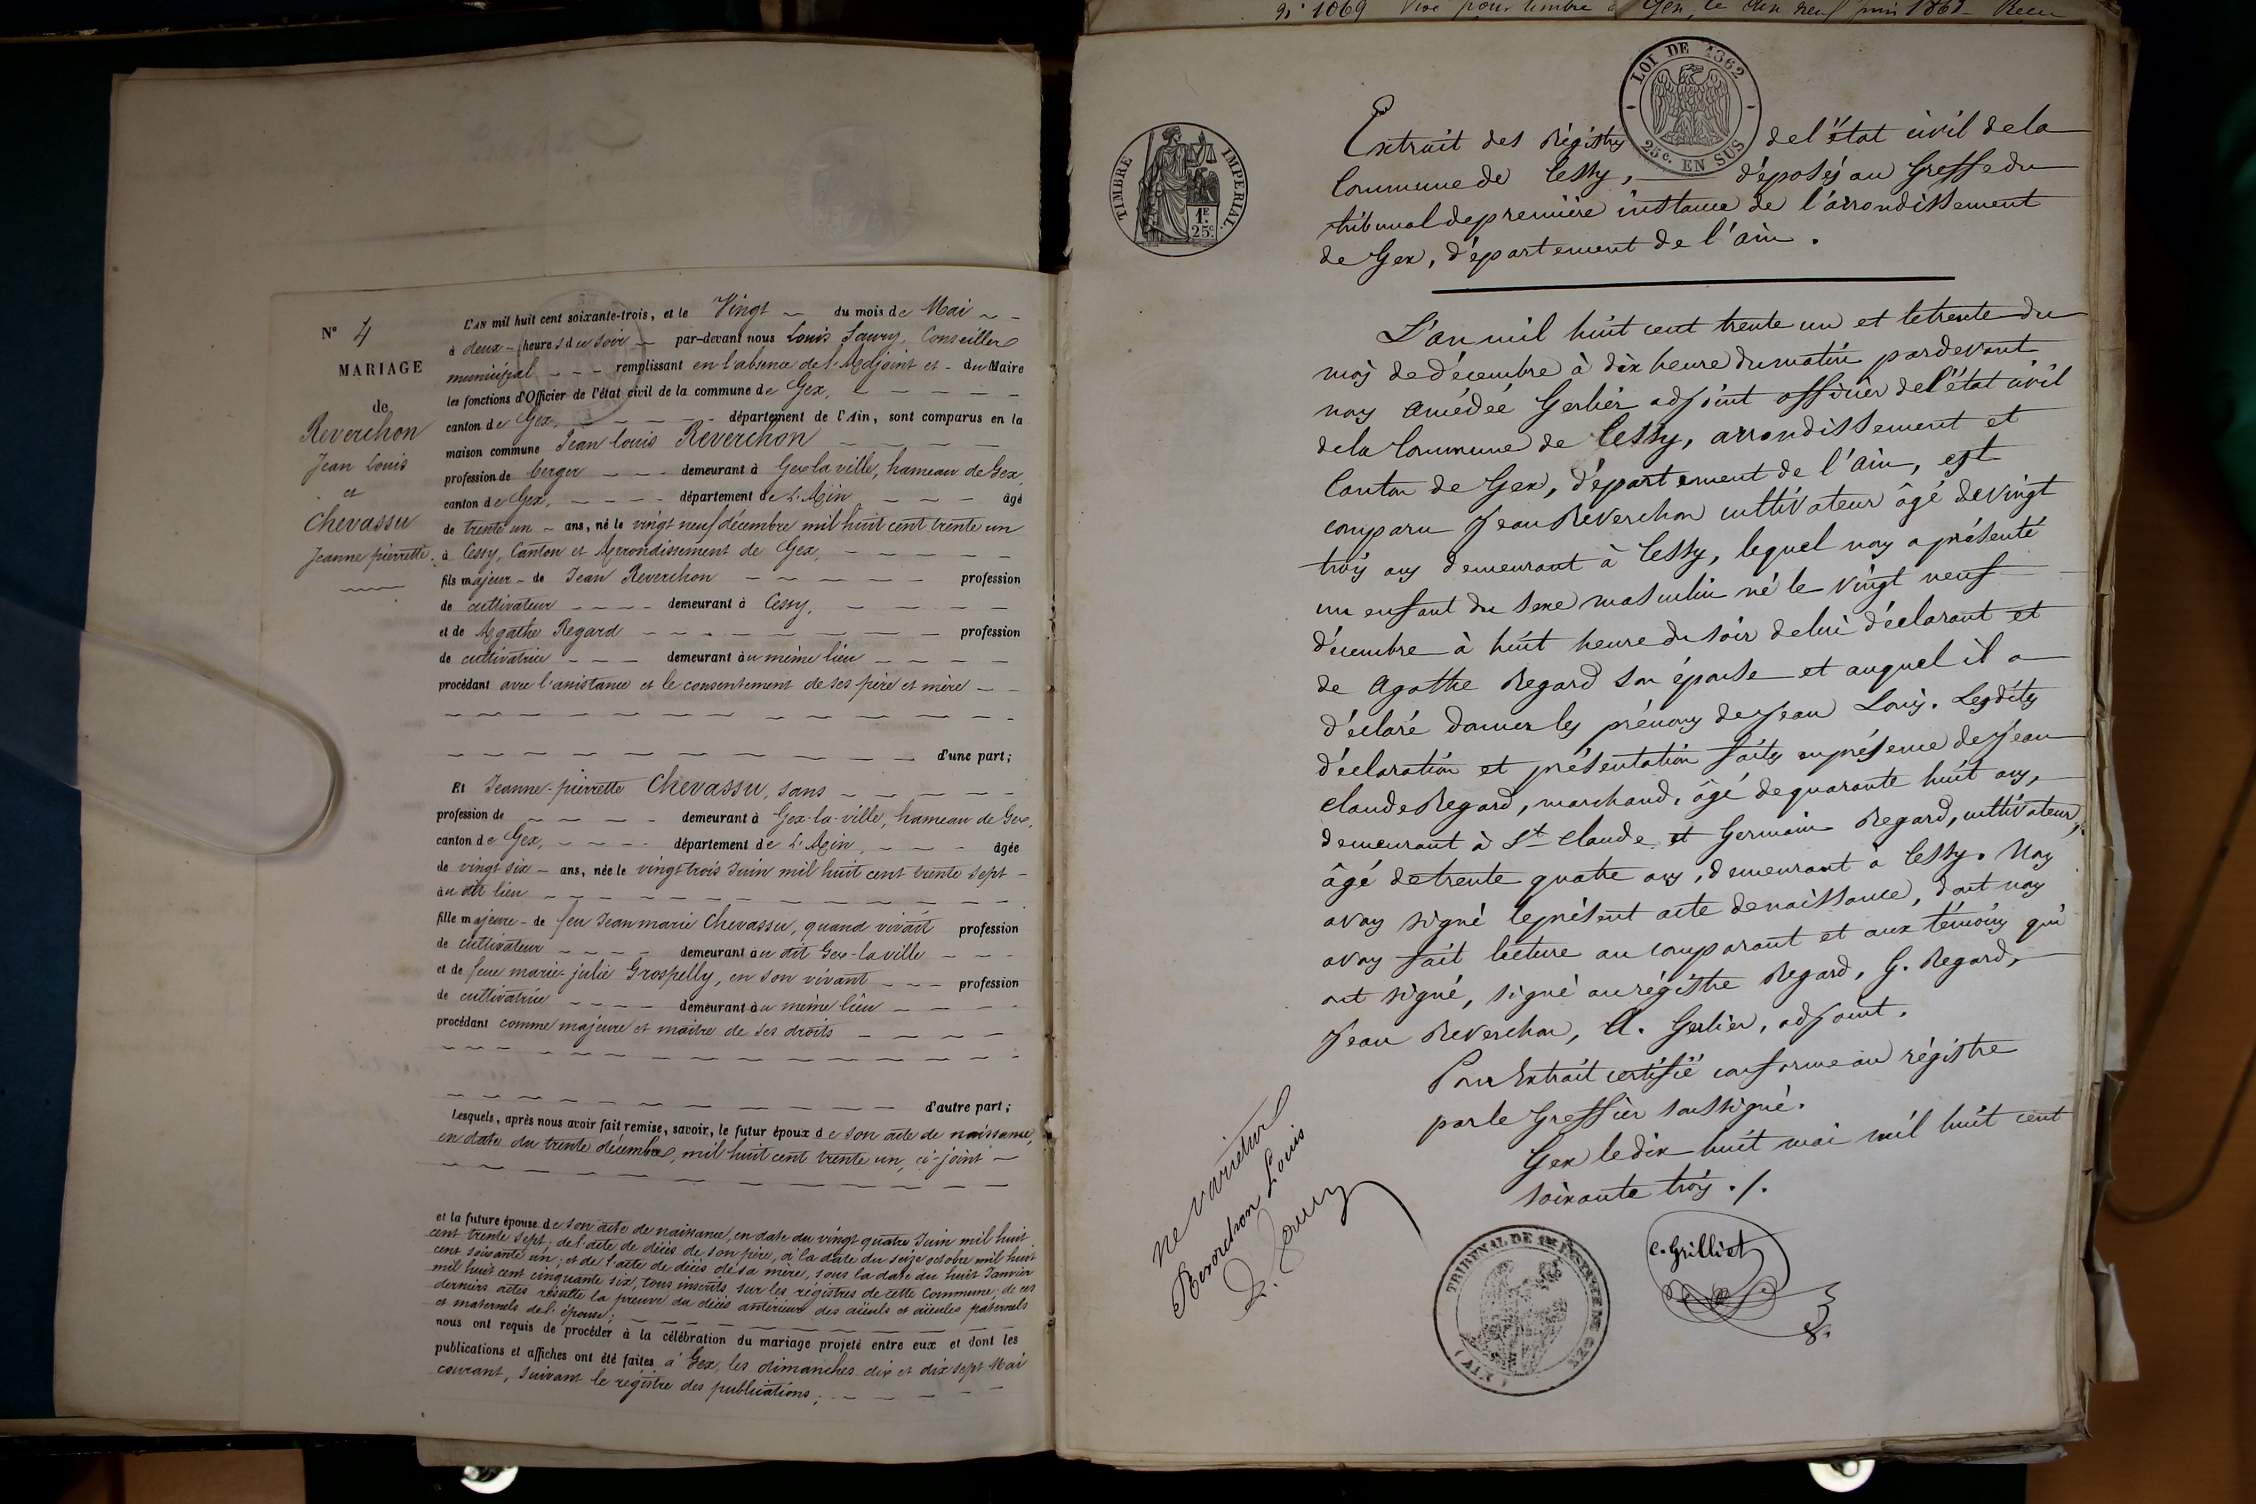 N° 4
MARIAGE
de
Reverchon
Jean Louis
et
Chevassu
Jeanne pierrette.
L'AN mil huit cent soixante-trois, et le Vingt du mois de Mai
à deux heures du soir par-devant nous Louis Conseiller
municipal remplissant en l'absence de l'Adjoint et du Maire
les fonctions d'Officier de l'état civil de la commune de Gex,
canton de Gex, département de l'Ain, sont comparus en la
maison commune Jean Louis Reverchon
profession de berger demeurant à Gex la ville, hameau de Gex,
canton de Gex, département de L'Ain âgé
de trente un ans, né le vingt neuf décembre mil huit cent trente un
à Cessy, Canton et Arrondissement de Gex,
fils majeur de Jean Reverchon profession
de cultivateur demeurant à Cessy,
et de Agathe Regard profession
de cultivatrice demeurant au même lieu
procédant avec l'assistance et le consentement de ses père et mère
d'une part;
Et Jeanne-pierrette Chevassu, sans
profession de demeurant à Gex-la-ville, hameau de Gex,
canton de Gex, département de L'Ain, âgée
de vingt six ans, née le vingt trois Juin mil huit cent trente sept
au dit lieu
fille majeure de feu Jean marie Chevassu, quand vivait profession
de cultivateur demeurant au dit Gex-la ville
et de feue marie-julie Grospelly, en son vivant profession
de cultivatrice demeurant au même lieu
procédant comme majeure et maître de ses droits
d'autre part;
Lesquels, après nous avoir fait remise, savoir, le futur époux de son acte de naissance,
en date du trente décembre, mil huit cent trente un, ci-joint
et la future épouse de son acte de naissance, en date du vingt quatre Juin mil huit
cent trente sept; de l'acte de décès de son père, à la date du seize octobre mil huit
cent soixante un, et de l'acte de décès de sa mère, sous la date du huit Janvier
mil huit cent cinquante six, tous inscrits sur les régistres de cette Commune; de ces
derniers actes résulte la preuve du décès antérieur des aïeuls et aïeules paternels
et maternels de l'épouse;
nous ont requis de procéder à la célébration du mariage projeté entre eux et dont les
publications et affiches ont été faites à Gex, les dimanches dix et dix sept Mai
courant, suivant le régistre des publications;
n° 1069 Visé pour timbre à Gex, le dix neuf
TIMBRE IMPERIAL
1F 25c.
LOI DE 1862
25c. EN SUS
Extrait des Régistres de l'état civil de la
Commune de Cessy, déposés au Greffe du
tribunal de première instance de l'arrondissement
de Gex, département de l'ain.
L'an mil huit cent trente un et le trente du
mois de décembre à dix heure du matin pardevant
nous Amédée Gerlier adjoint officier de l'état civil
de la Commune de Cessy, arrondissement et
Canton de Gex, département de l'ain, est
comparu Jean Reverchon cultivateur âgé de vingt
trois ans demeurant à Cessy, lequel nous a présenté
un enfant du sexe masculin né le vingt neuf
décembre à huit heure du soir de lui déclarant et
de Agathe Regard son épouse et auquel il a
déclaré donner les prénoms de Jean Louis. Lesdites
déclaration et présentation faites en présence de Jean
Claude Regard, marchand, âgé de quarante huit ans,
demeurant à St Claude et Germain Regard, cultivateur,
âgé de trente quatre ans, demeurant à Cessy. Nous
avons signé le présent acte de naissance, dont nous
avons fait lecture au comparant et aux témoins qui
ont signé, signé au régistre Regard, G. Regard,
Jean Reverchon, A. Gerlier, adjoint.
Pour Extrait certifié conforme au régistre
par le Greffier soussigné.
Gex le dix huit mai mil huit cent
soixante trois ./.
ne varietur
Reverchon Louis
C. Grilliet
TRIBUNAL DE 1RE INSTANCE DE GEX
(AIN)